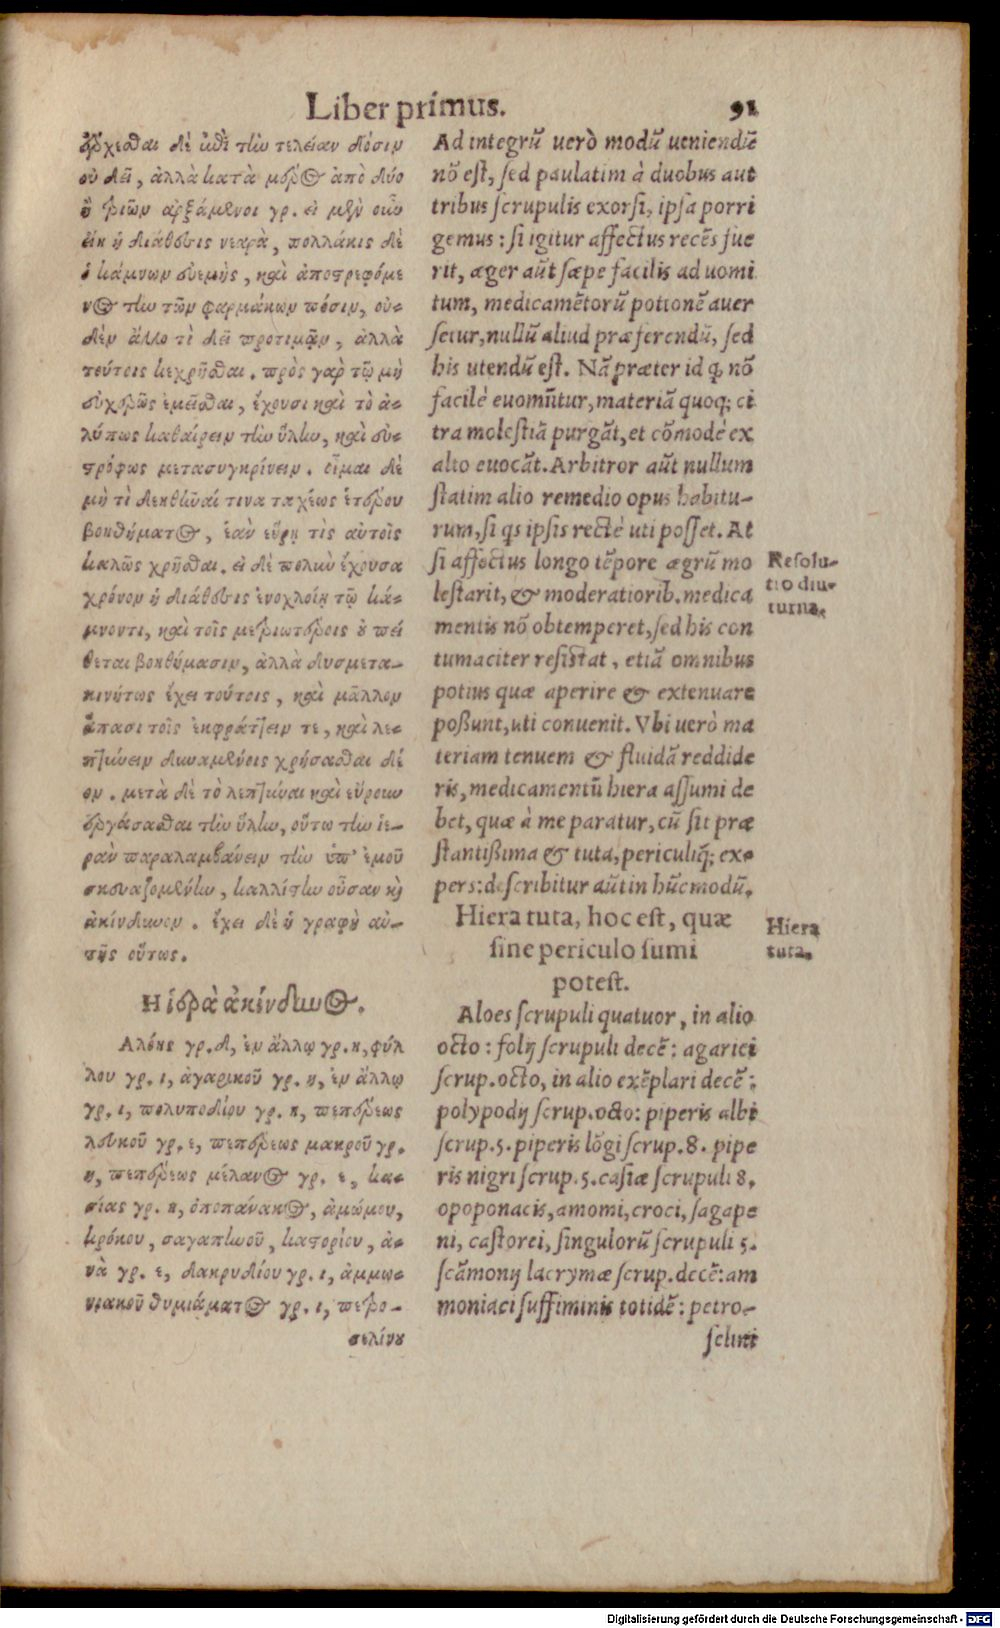 Liber primus. 91
ἔρχεσθαι δὲ ἐπὶ τὴν τελείαν δόσιν
οὐ δεῖ, ἀλλὰ κατὰ μέρος ἀπὸ δύο
ἢ τριῶν ἀρξάμενοι γρ. εἰ μὲν οὖν
εἴη ἡ διάθεσις νεαρὰ, πολλάκις δὲ
ὁ κάμνων εὐεμὴς, καὶ ἀποστρεφόμε
νος τὴν τῶν φαρμάκων πόσιν, οὐ-
δὲν ἄλλο τὶ δεῖ προτιμᾷν, ἀλλὰ
τούτοις κεχρῆσθαι. πρὸς γὰρ τῷ μὴ
εὐχερῶς ἐμεῖσθαι, ἔχουσι καὶ τὸ ἀ-
λύπως καθαίρειν τὴν ὕλην, καὶ εὐ-
τρόφως μετασυγκρίνειν. οἶμαι δὲ
μὴ τὶ δεηθῆναί τινα ταχέως ἑτέρου
βοηθήματος, ἐὰν εὕρῃ τὶς αὐτοῖς
καλῶς χρῆσθαι. εἰ δὲ πολὺν ἔχουσα
χρόνον ἡ διάθεσις ἐνοχλοίη τῷ κά-
μνοντι, καὶ τοῖς μετριωτέροις οὐ πεί
θεται βοηθήμασιν, ἀλλὰ δυσμετα-
κινήτως ἔχει τούτοις, καὶ μᾶλλον
ἅπασι τοῖς ἐκφράττειν τε, καὶ λε-
πτύνειν δυναμένοις χρήσασθαι δέ
ον. μετὰ δὲ τὸ λεπτύναι καὶ εὔρουν
ἐργάσασθαι τὴν ὕλην, οὕτω τὴν ἱε-
ρὰν παραλαμβάνειν τὴν ὑπ' ἐμοῦ
σκευαζομένην, καλλίστην οὖσαν καὶ
ἀκίνδυνον. ἔχει δὲ ἡ γραφὴ αὐ-
τῆς οὕτως.
Η ἱερὰ ἀκίνδυνος.
Αλόης γρ. δ, ἐν ἄλλῳ γρ. η, φύλ
λου γρ. ι, ἀγαρικοῦ γρ. η, ἐν ἄλλῳ
γρ. ι, πολυποδίου γρ. η, πεπέρεως
λευκοῦ γρ. ε, πεπέρεως μακροῦ γρ.
η, πεπέρεως μέλανος γρ. ε, κα-
σίας γρ. η, ὀποπάνακος, ἀμώμου,
κρόκου, σαγαπηνοῦ, καστορίου, ἀ-
νὰ γρ. ε, δακρυδίου γρ. ι, ἀμμω-
νιακοῦ θυμιάματος γρ. ι, πετρο-
σελίνου
Ad integrũ uerò modũ ueniendũ
nõ est, sed paulatim à duobus aut
tribus scrupulis exorsi, ipsa porri
gemus: si igitur affectus recẽs fue
rit, æger aũt sæpe facilis ad uomi
tum, medicamẽtorũ potionẽ auer
setur, nullũ aliud præferendũ, sed
his utendũ est. Nã præter id q, nõ
facilè euomũtur, materiã quoq; ci
tra molestiã purgãt, et cõmodè ex
alto euocãt. Arbitror aũt nullum
statim alio remedio opus habitu-
rum, si qs ipsis rectè uti posset. At
si affectus longo tẽpore ægrũ mo
lestarit, & moderatiorib. medica
mentis nõ obtemperet, sed his con
tumaciter resistat, etiã omnibus
potius quæ aperire & extenuare
possunt, uti conuenit. Vbi uerò ma
teriam tenuem & fluidã reddide
ris, medicamentũ hiera assumi de
bet, quæ à me paratur, cũ sit præ
stantissima & tuta, periculiq; ex-
pers: describitur aũt in hũc modũ.
Hiera tuta, hoc est, quæ
sine periculo sumi
potest.
Aloes scrupuli quatuor, in alio
octo: folij scrupuli decẽ: agarici
scrup. octo, in alio exẽplari decẽ:
polypodij scrup. octo: piperis albi
scrup. 5. piperis lõgi scrup. 8. pipe
ris nigri scrup. 5. casiæ scrupuli 8.
opoponacis, amomi, croci, sagape
ni, castorei, singulorũ scrupuli 5.
scãmonij lacrymæ scrup. decẽ: am
moniaci suffiminis totidẽ: petro-
selini
Resolu-
tio diu-
turna.
Hiera
tuta.
Digitalisierung gefördert durch die Deutsche Forschungsgemeinschaft - DFG